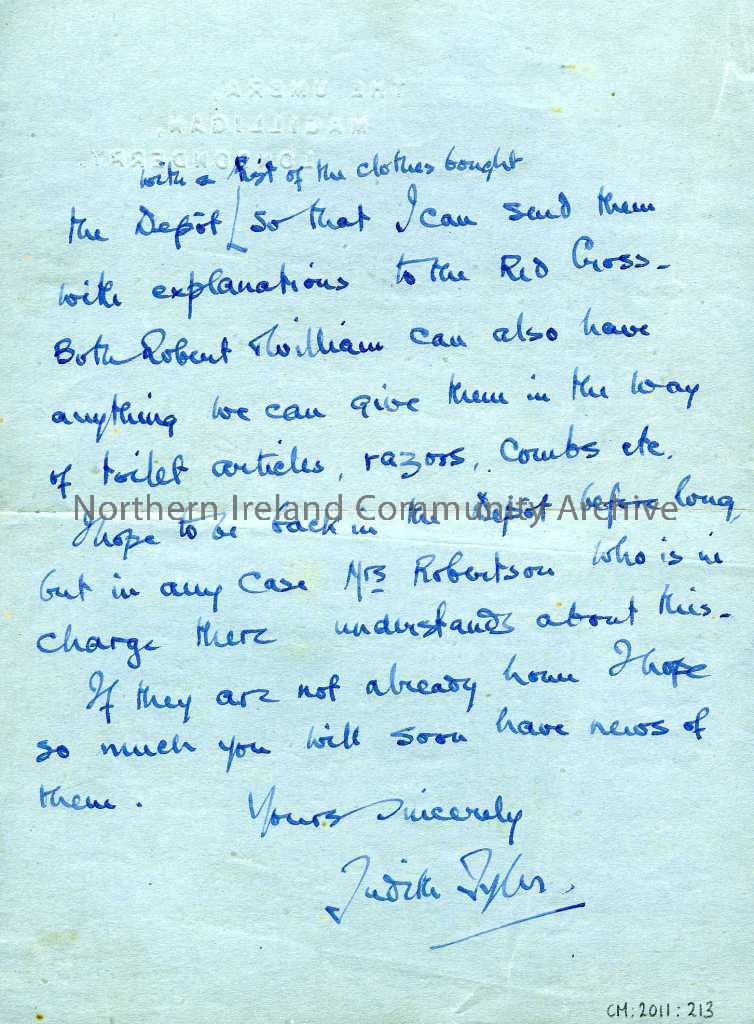 THE UMBRA,
MAGILLIGAN,
LONDONDERRY.
with a list of the clothes bought
the Depôt so that I can send them
with explanations to the Red Cross.
Both Robert & William can also have
anything we can give them in the way
of toilet articles, razors, combs etc.
I hope to be back in the Depôt before long,
but in any case Mrs Robertson who is in
charge there understands about this.
If they are not already home I hope
so much you will soon have news of
them.
Yours sincerely
Judith Tyler.
Northern Ireland Community Archive
CM:2011:213